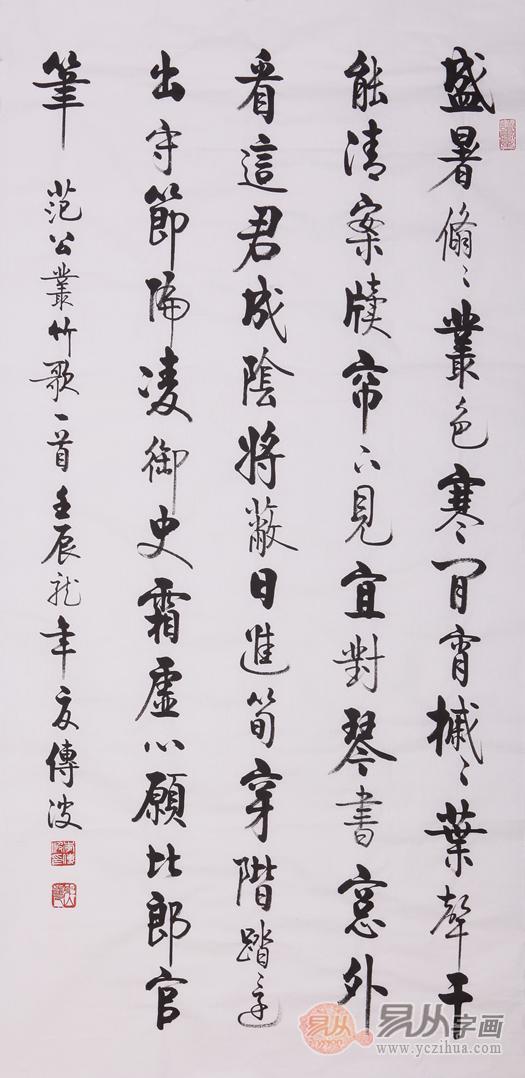 盛暑翛〻叢色寒間宵槭〻葉聲干
能清案牘帘下見宜對琴書窓外
看這君成陰將蔽日進筍穿階踏還
出守節偏凌御史霜虛心願比郎官
筆 范公叢竹歌一首壬辰龍年夏傳波
易从 易从字画
www.yczihua.com